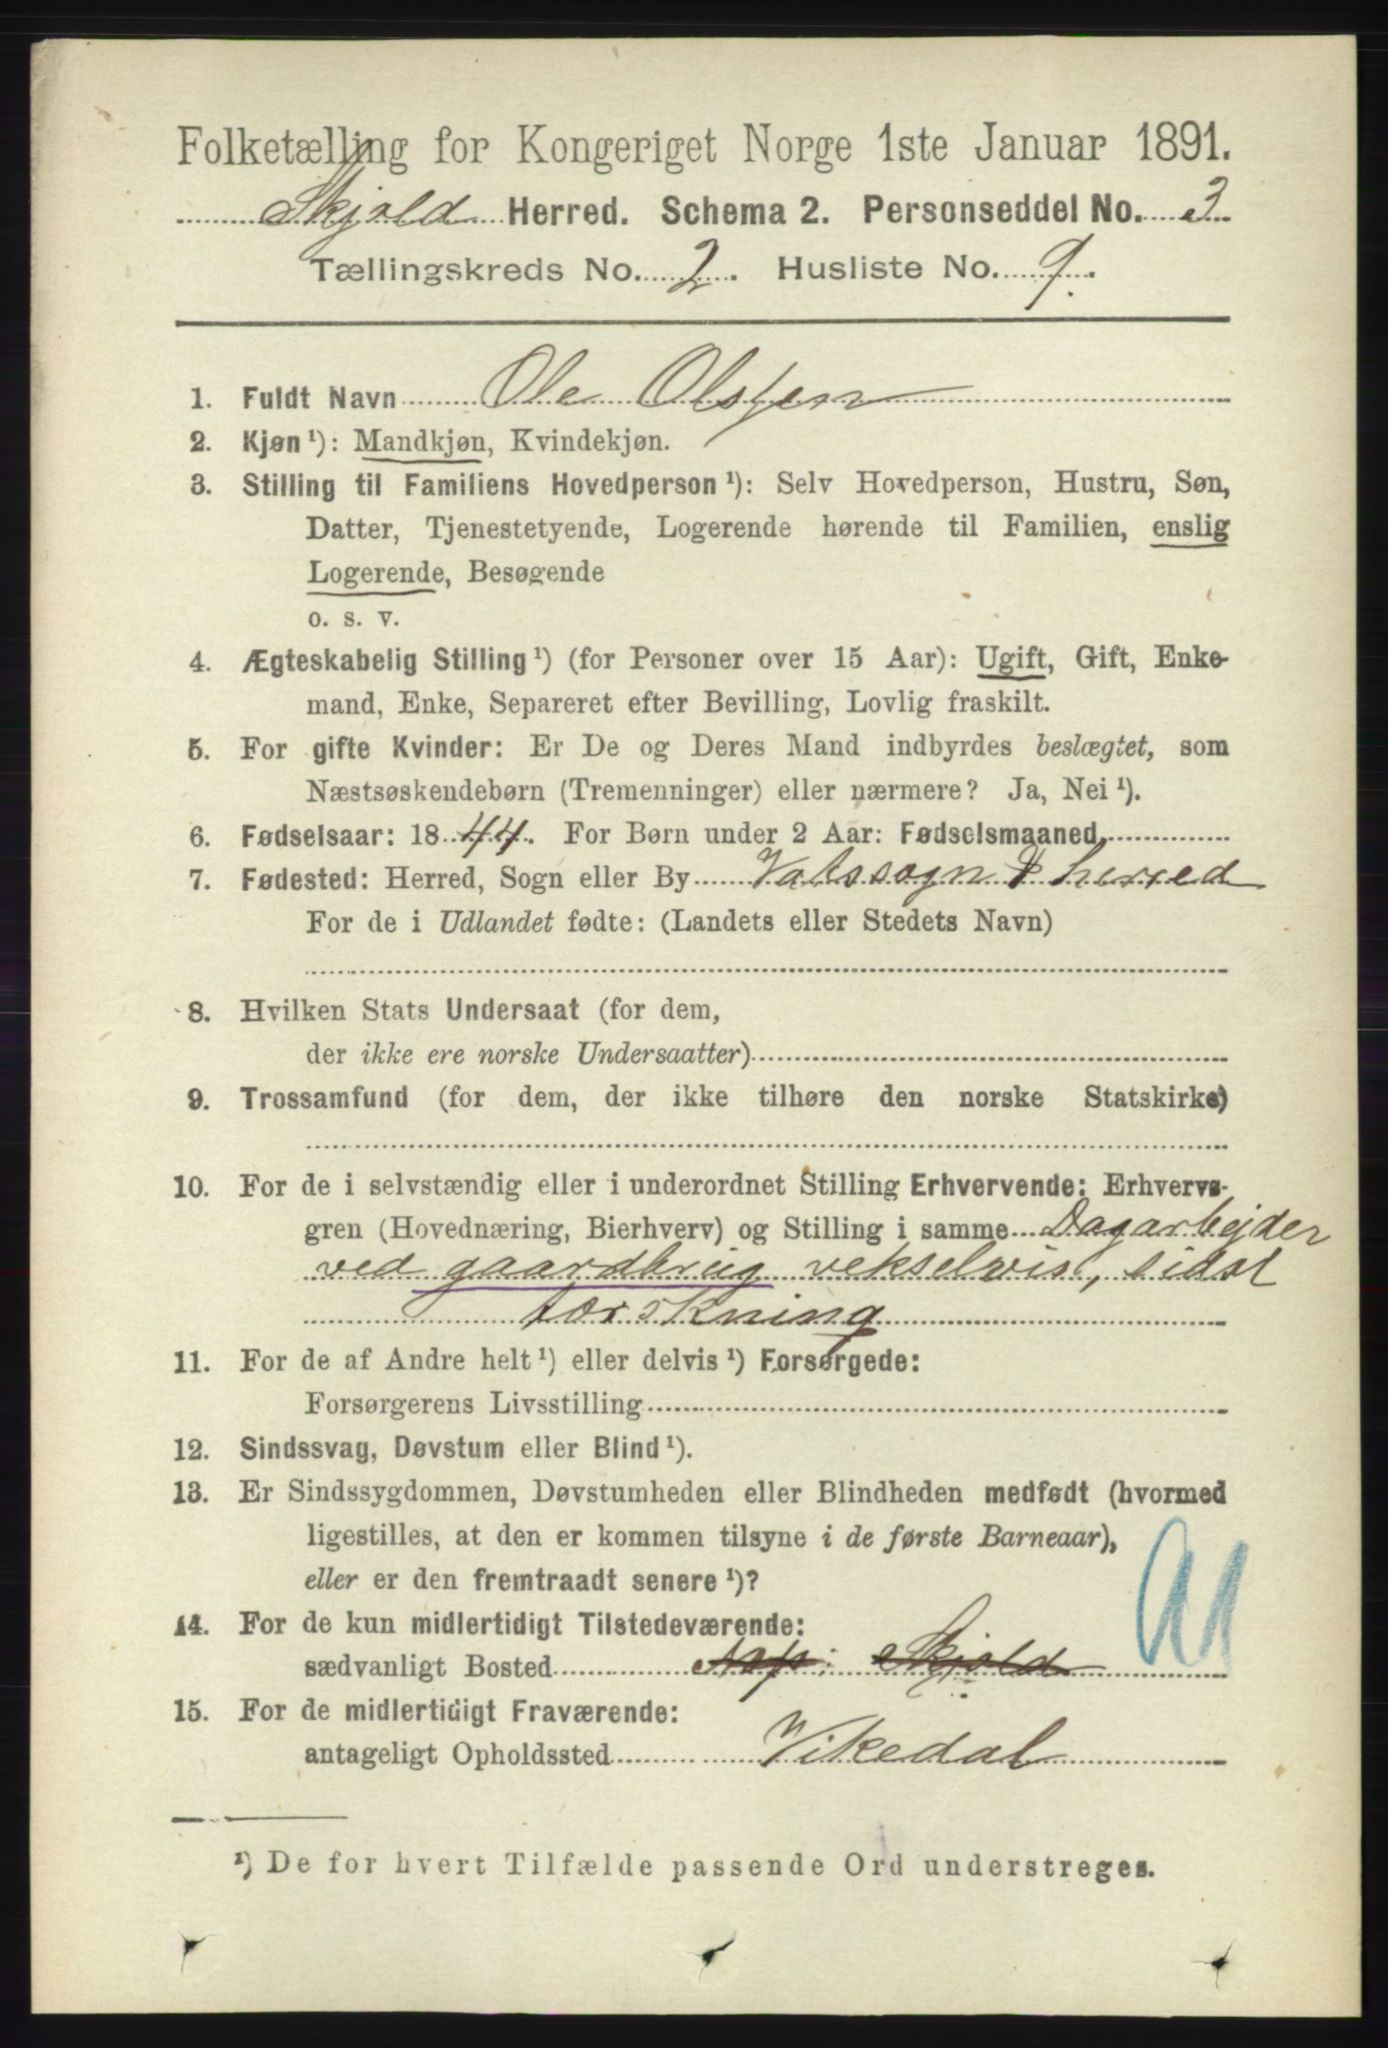 Folketælling for Kongeriget Norge 1ste Januar 1891.
Skjold Herred. Schema 2. Personseddel No. 3
Tællingskreds No. 2. Husliste No. 9.
1. Fuldt Navn Ole Olsen
2. Kjøn ¹): Mandkjøn, Kvindekjøn.
3. Stilling til Familiens Hovedperson ¹): Selv Hovedperson, Hustru, Søn,
Datter, Tjenestetyende, Logerende hørende til Familien, enslig
Logerende, Besøgende
o. s. v.
4. Ægteskabelig Stilling ¹) (for Personer over 15 Aar): Ugift, Gift, Enke-
mand, Enke, Separeret efter Bevilling, Lovlig fraskilt.
5. For gifte Kvinder: Er De og Deres Mand indbyrdes beslægtet, som
Næstsøskendebørn (Tremenninger) eller nærmere? Ja, Nei ¹).
6. Fødselsaar: 1844. For Børn under 2 Aar: Fødselsmaaned
7. Fødested: Herred, Sogn eller By Vatssogn & herred
For de i Udlandet fødte: (Landets eller Stedets Navn)
8. Hvilken Stats Undersaat (for dem,
der ikke ere norske Undersaatter)
9. Trossamfund (for dem, der ikke tilhøre den norske Statskirke)
10. For de i selvstændig eller i underordnet Stilling Erhvervende: Erhvervs-
gren (Hovednæring, Bierhverv) og Stilling i samme Dagarbejder
ved gaardbrug vekselvis, sidst
tærskning
11. For de af Andre helt ¹) eller delvis ¹) Forsørgede:
Forsørgerens Livsstilling
12. Sindssvag, Døvstum eller Blind ¹).
13. Er Sindssygdommen, Døvstumheden eller Blindheden medfødt (hvormed
ligestilles, at den er kommen tilsyne i de første Barneaar),
eller er den fremtraadt senere ¹)?
14. For de kun midlertidigt Tilstedeværende:
sædvanligt Bosted Skjold
15. For de midlertidigt Fraværende:
antageligt Opholdssted Vikedal
¹) De for hvert Tilfælde passende Ord understreges.